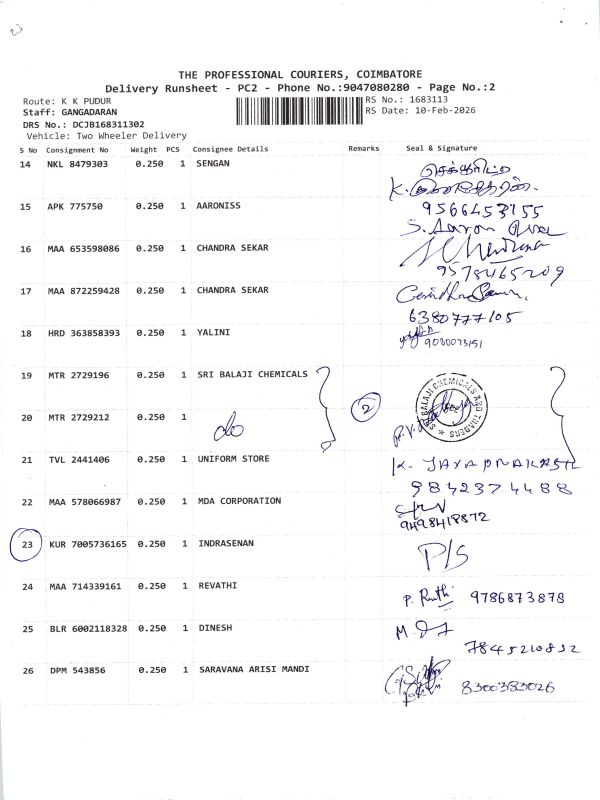 23
THE PROFESSIONAL COURIERS, COIMBATORE
Delivery Runsheet - PC2 - Phone No.:9047080280 - Page No.:2
Route: K K PUDUR
RS No.: 1683113
Staff: GANGADARAN
RS Date: 10-Feb-2026
DRS No.: DCJB168311302
Vehicle: Two Wheeler Delivery
S No Consignment No Weight PCS Consignee Details Remarks Seal & Signature
14 NKL 8479303 0.250 1 SENGAN
15 APK 775750 0.250 1 AARONISS 9566453155
S. Aaron
16 MAA 653598086 0.250 1 CHANDRA SEKAR
9578465209
17 MAA 872259428 0.250 1 CHANDRA SEKAR
6380777105
18 HRD 363858393 0.250 1 YALINI 9080073151
19 MTR 2729196 0.250 1 SRI BALAJI CHEMICALS
2
SRI BALAJI CHEMICALS AND TRADERS
20 MTR 2729212 0.250 1 do
21 TVL 2441406 0.250 1 UNIFORM STORE K. JAYAPRAKASH
9842374488
22 MAA 578066987 0.250 1 MDA CORPORATION
9498418872
23 KUR 7005736165 0.250 1 INDRASENAN P/S
24 MAA 714339161 0.250 1 REVATHI P. Ruthi 9786873878
25 BLR 6002118328 0.250 1 DINESH
7845210832
26 DPM 543856 0.250 1 SARAVANA ARISI MANDI 8300383026